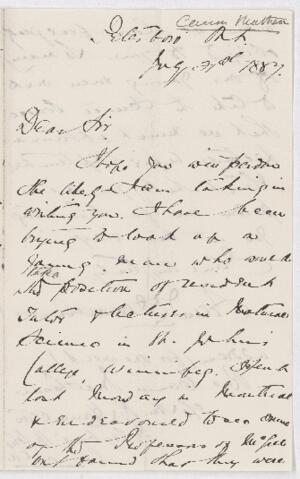 Canon Matheson
July 31st 1887.
Dear Sir
I hope you will pardon
the liberty I am taking in
writing you. I have been
trying to look up a
young man who would
take
the position of resident
Tutor & lecturer in Natural
Science in St. John's
College, Winnipeg. I spent
last Monday in Montreal
& endeavoured to see some
of the Professors of McGill
but found that they were